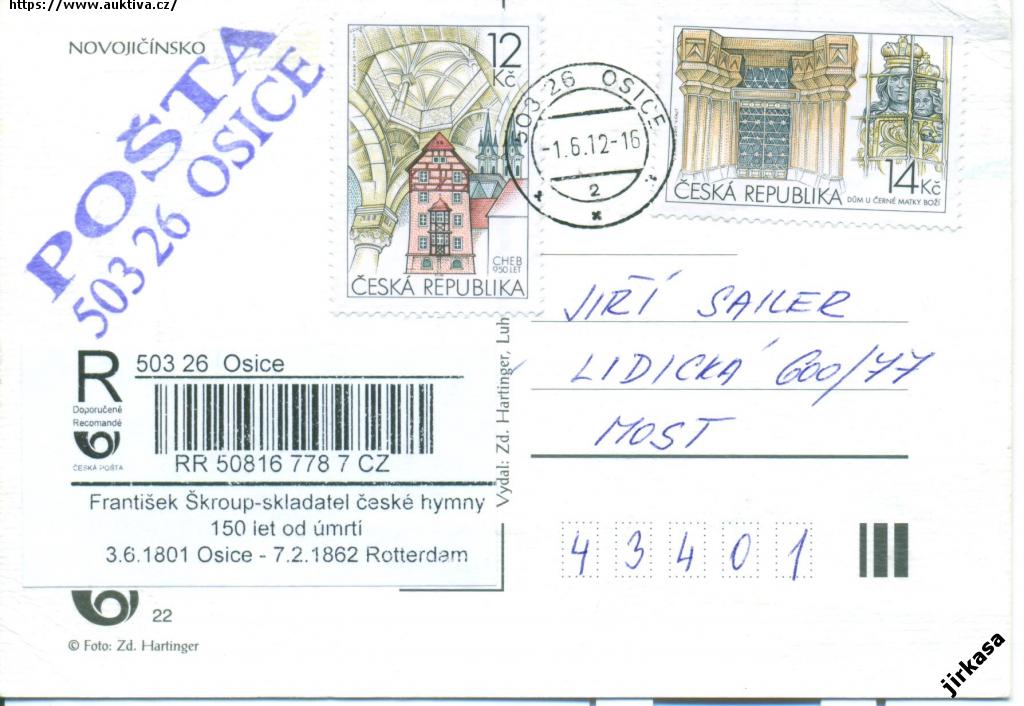 https://www.auktiva.cz/
NOVOJIČÍNSKO
POŠTA
503 26 OSICE
12 Kč
CHEB
950 LET
ČESKÁ REPUBLIKA
503 26 OSICE
-1.6.12-16
2
14 Kč
ČESKÁ REPUBLIKA DŮM U ČERNÉ MATKY BOŽÍ
JIŘÍ SAILER
LIDICKÁ 600/77
MOST
43401
R 503 26 Osice
Doporučeně
Recomandé
ČESKÁ POŠTA
RR 50816 778 7 CZ
František Škroup-skladatel české hymny
150 let od úmrtí
3.6.1801 Osice - 7.2.1862 Rotterdam
Vydal: Zd. Hartinger, Luh
22
© Foto: Zd. Hartinger
jirkasa